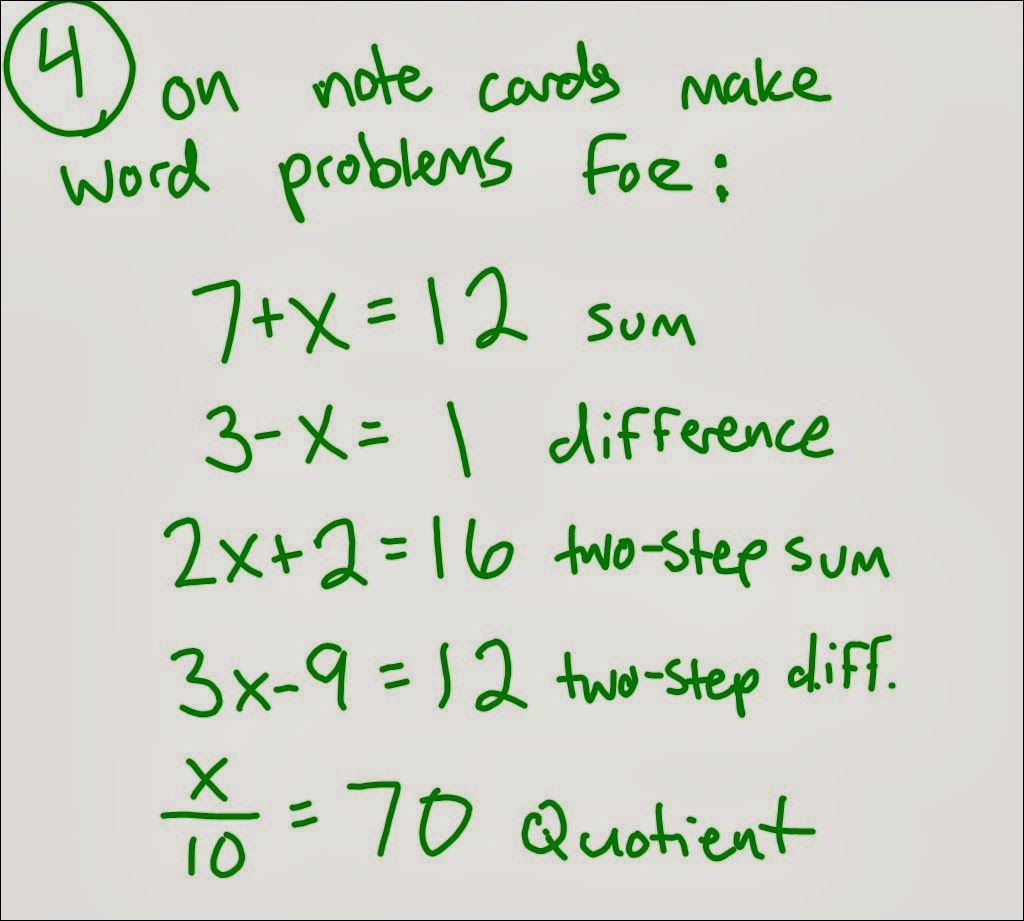 4 on note cards make
word problems for:
7+x=12 sum
3-x=1 difference
2x+2=16 two-step sum
3x-9=12 two-step diff.
x/10=70 Quotient